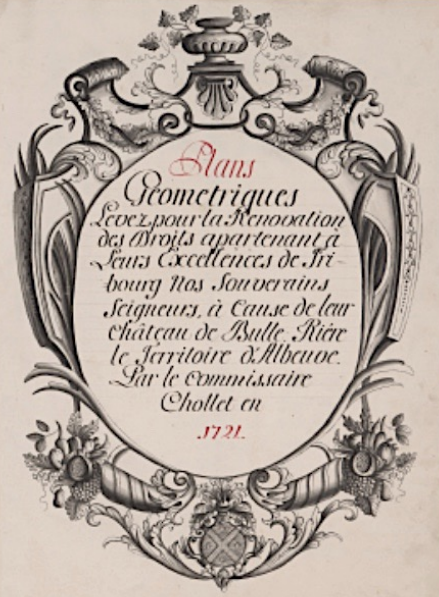 Plans
Geometriques
Levez pour la Renovation
des Droits apartenant à
Leurs Excellences de Fri-
bourg Nos Souverains
Seigneurs, à Cause de leur
Château de Bulle. Riére
le Territoire d'Albeuve.
Par le Commissaire
Chollet en
1721.